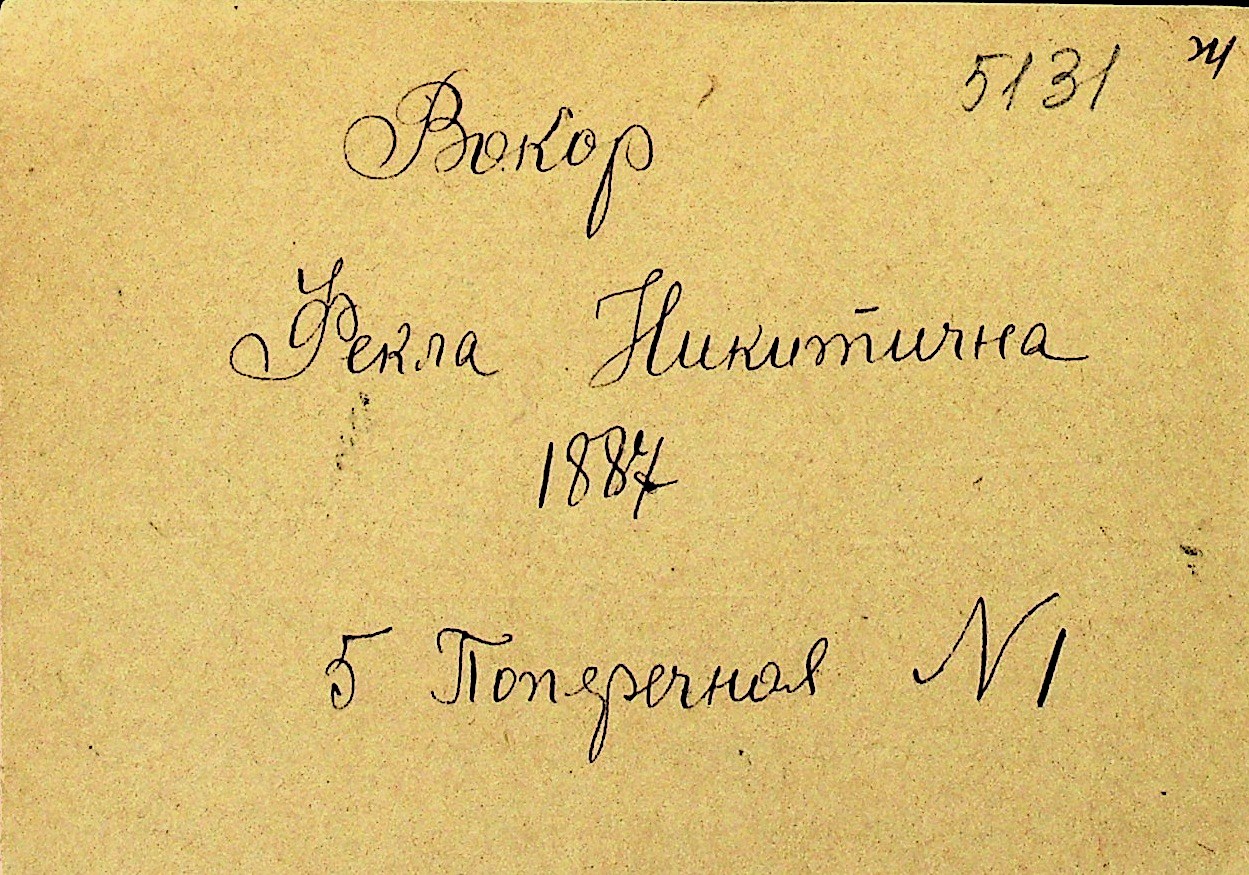 5131 ж
Вокор
Фекла Никитична
1887
5 Поперечная N 1